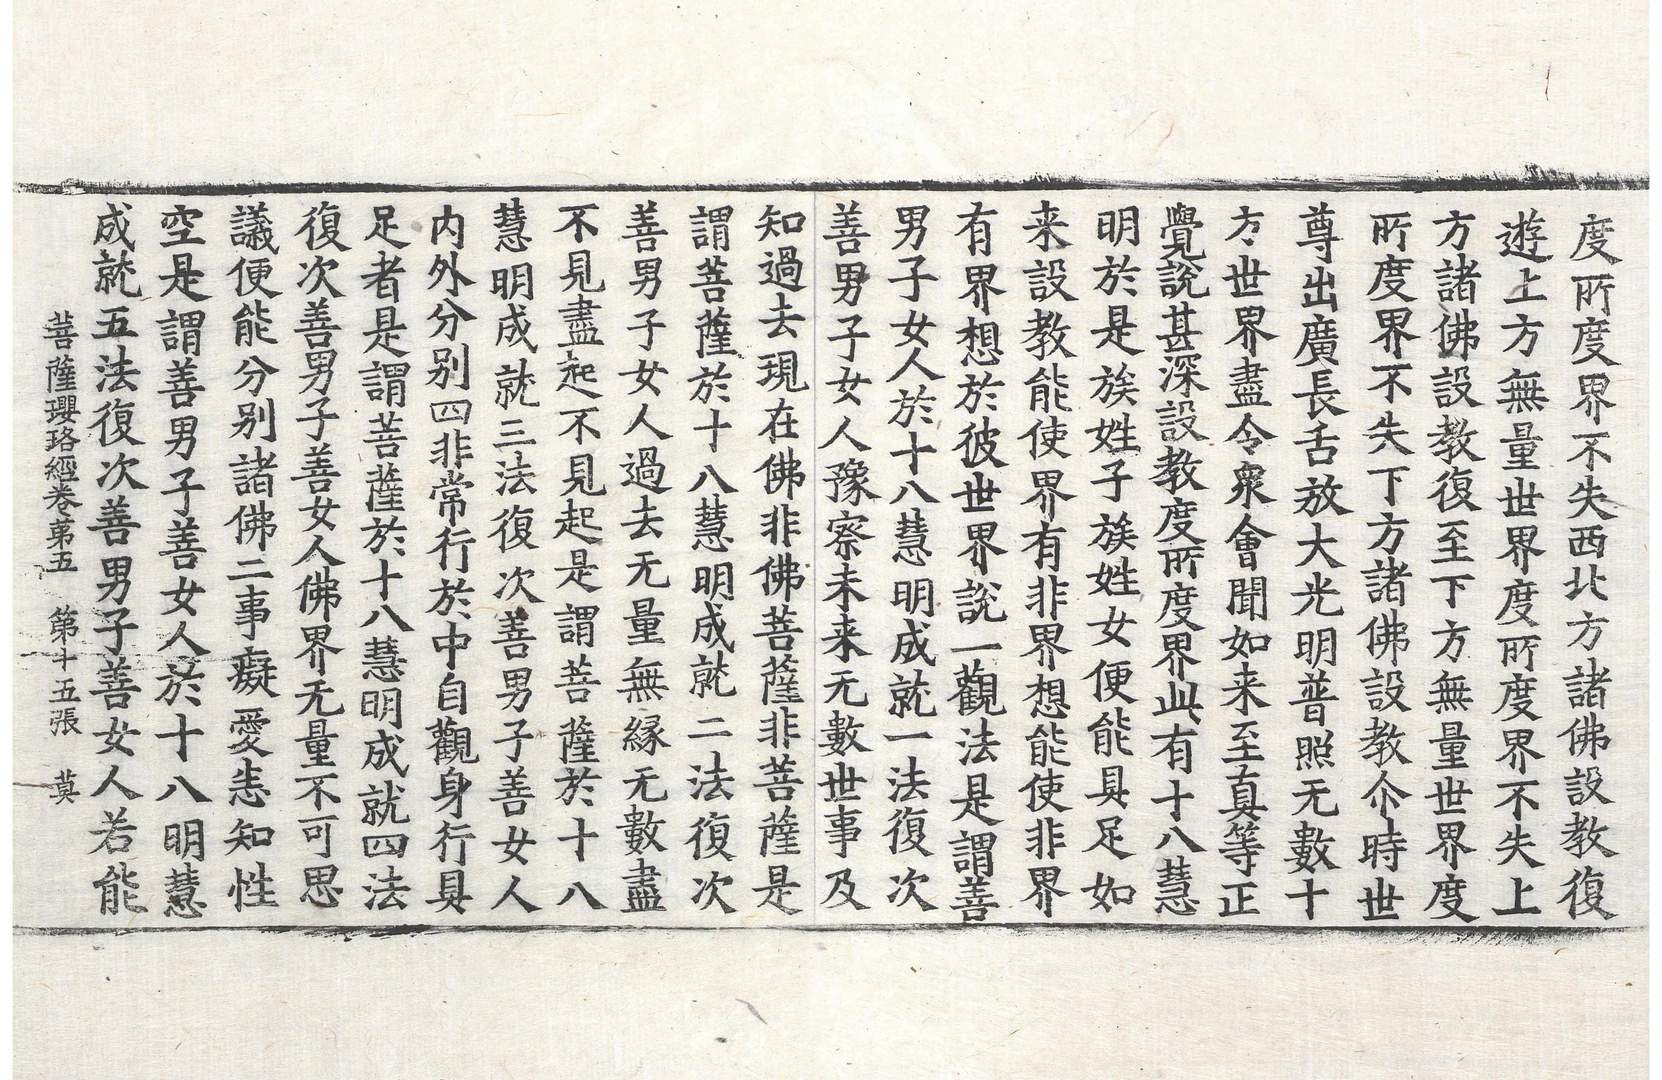 度所度界不失西北方諸佛設教復
遊上方無量世界度所度界不失上
方諸佛設教復至下方無量世界度
所度界不失下方諸佛設教尒時世
尊出廣長舌放大光明普照无數十
方世界盡令衆會聞如来至真等正
覺說甚深設教度所度界此有十八慧
明於是族姓子族姓女便能具足如
来設教能使界有非界想能使非界
有界想於彼世界說一觀法是謂善
男子女人於十八慧明成就一法復次
善男子女人豫察未来无數世事及
知過去現在佛非佛菩薩非菩薩是
謂菩薩於十八慧明成就二法復次
善男子女人過去无量無縁无數盡
不見盡起不見起是謂菩薩於十八
慧明成就三法復次善男子善女人
内外分别四非常行於中自觀身行具
足者是謂菩薩於十八慧明成就四法
復次善男子善女人佛界无量不可思
議便能分别諸佛二事癡愛恚知性
空是謂善男子善女人於十八明慧
成就五法復次善男子善女人若能
菩薩瓔珞經卷第五 第十五張 莫